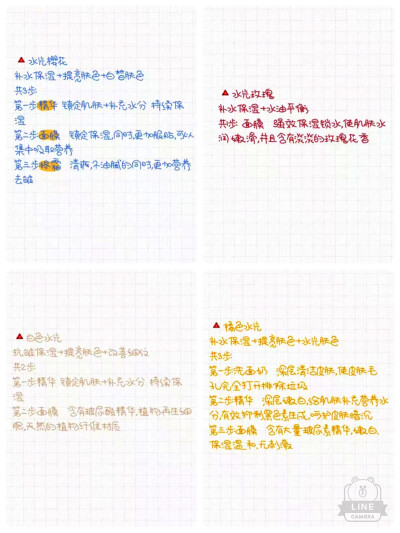 水光樱花
补水保湿+提亮肤色+白皙肤色
共3步
第一步精华 锁定肌肤+补充水分 持续保
湿
第二步面膜 锁定保湿,同时,更加服贴,可以
集中吸取营养
第三步修霜 清爽,不油腻的同时,更加营养
去皱
水光玫瑰
补水保湿+水油平衡
共1步 面膜 强效保湿锁水,使肌肤水
润嫩滑,并且含有淡淡的玫瑰花香
白色水光
抗皱保湿+提亮肤色+改善细纹
共2步
第一步精华 锁定肌肤+补充水分 持续保
湿
第二步面膜 含有玻尿酸精华,植物再生细
胞,天然的植物纤维材质
橘色水光
补水保湿+提亮肤色+水光肤色
共3步
第一步洗面奶 深层清洁皮肤,使皮肤毛
孔完全打开排除垃圾
第二步精华 深层嫩白,给肌肤补充营养水
分,有效抑制黑色素生成,呵护皮肤暗沉
第三步面膜 含有大量玻尿素精华,嫩白,
保湿温和,无刺激
LINE
CAMERA